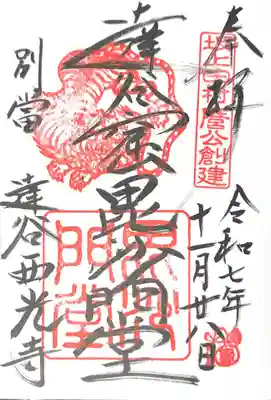 奉拝
坂上田村麿公創建
令和七年
十一月廿八日
達谷窟毘沙門堂
毘沙
門堂
別當
達谷西光寺